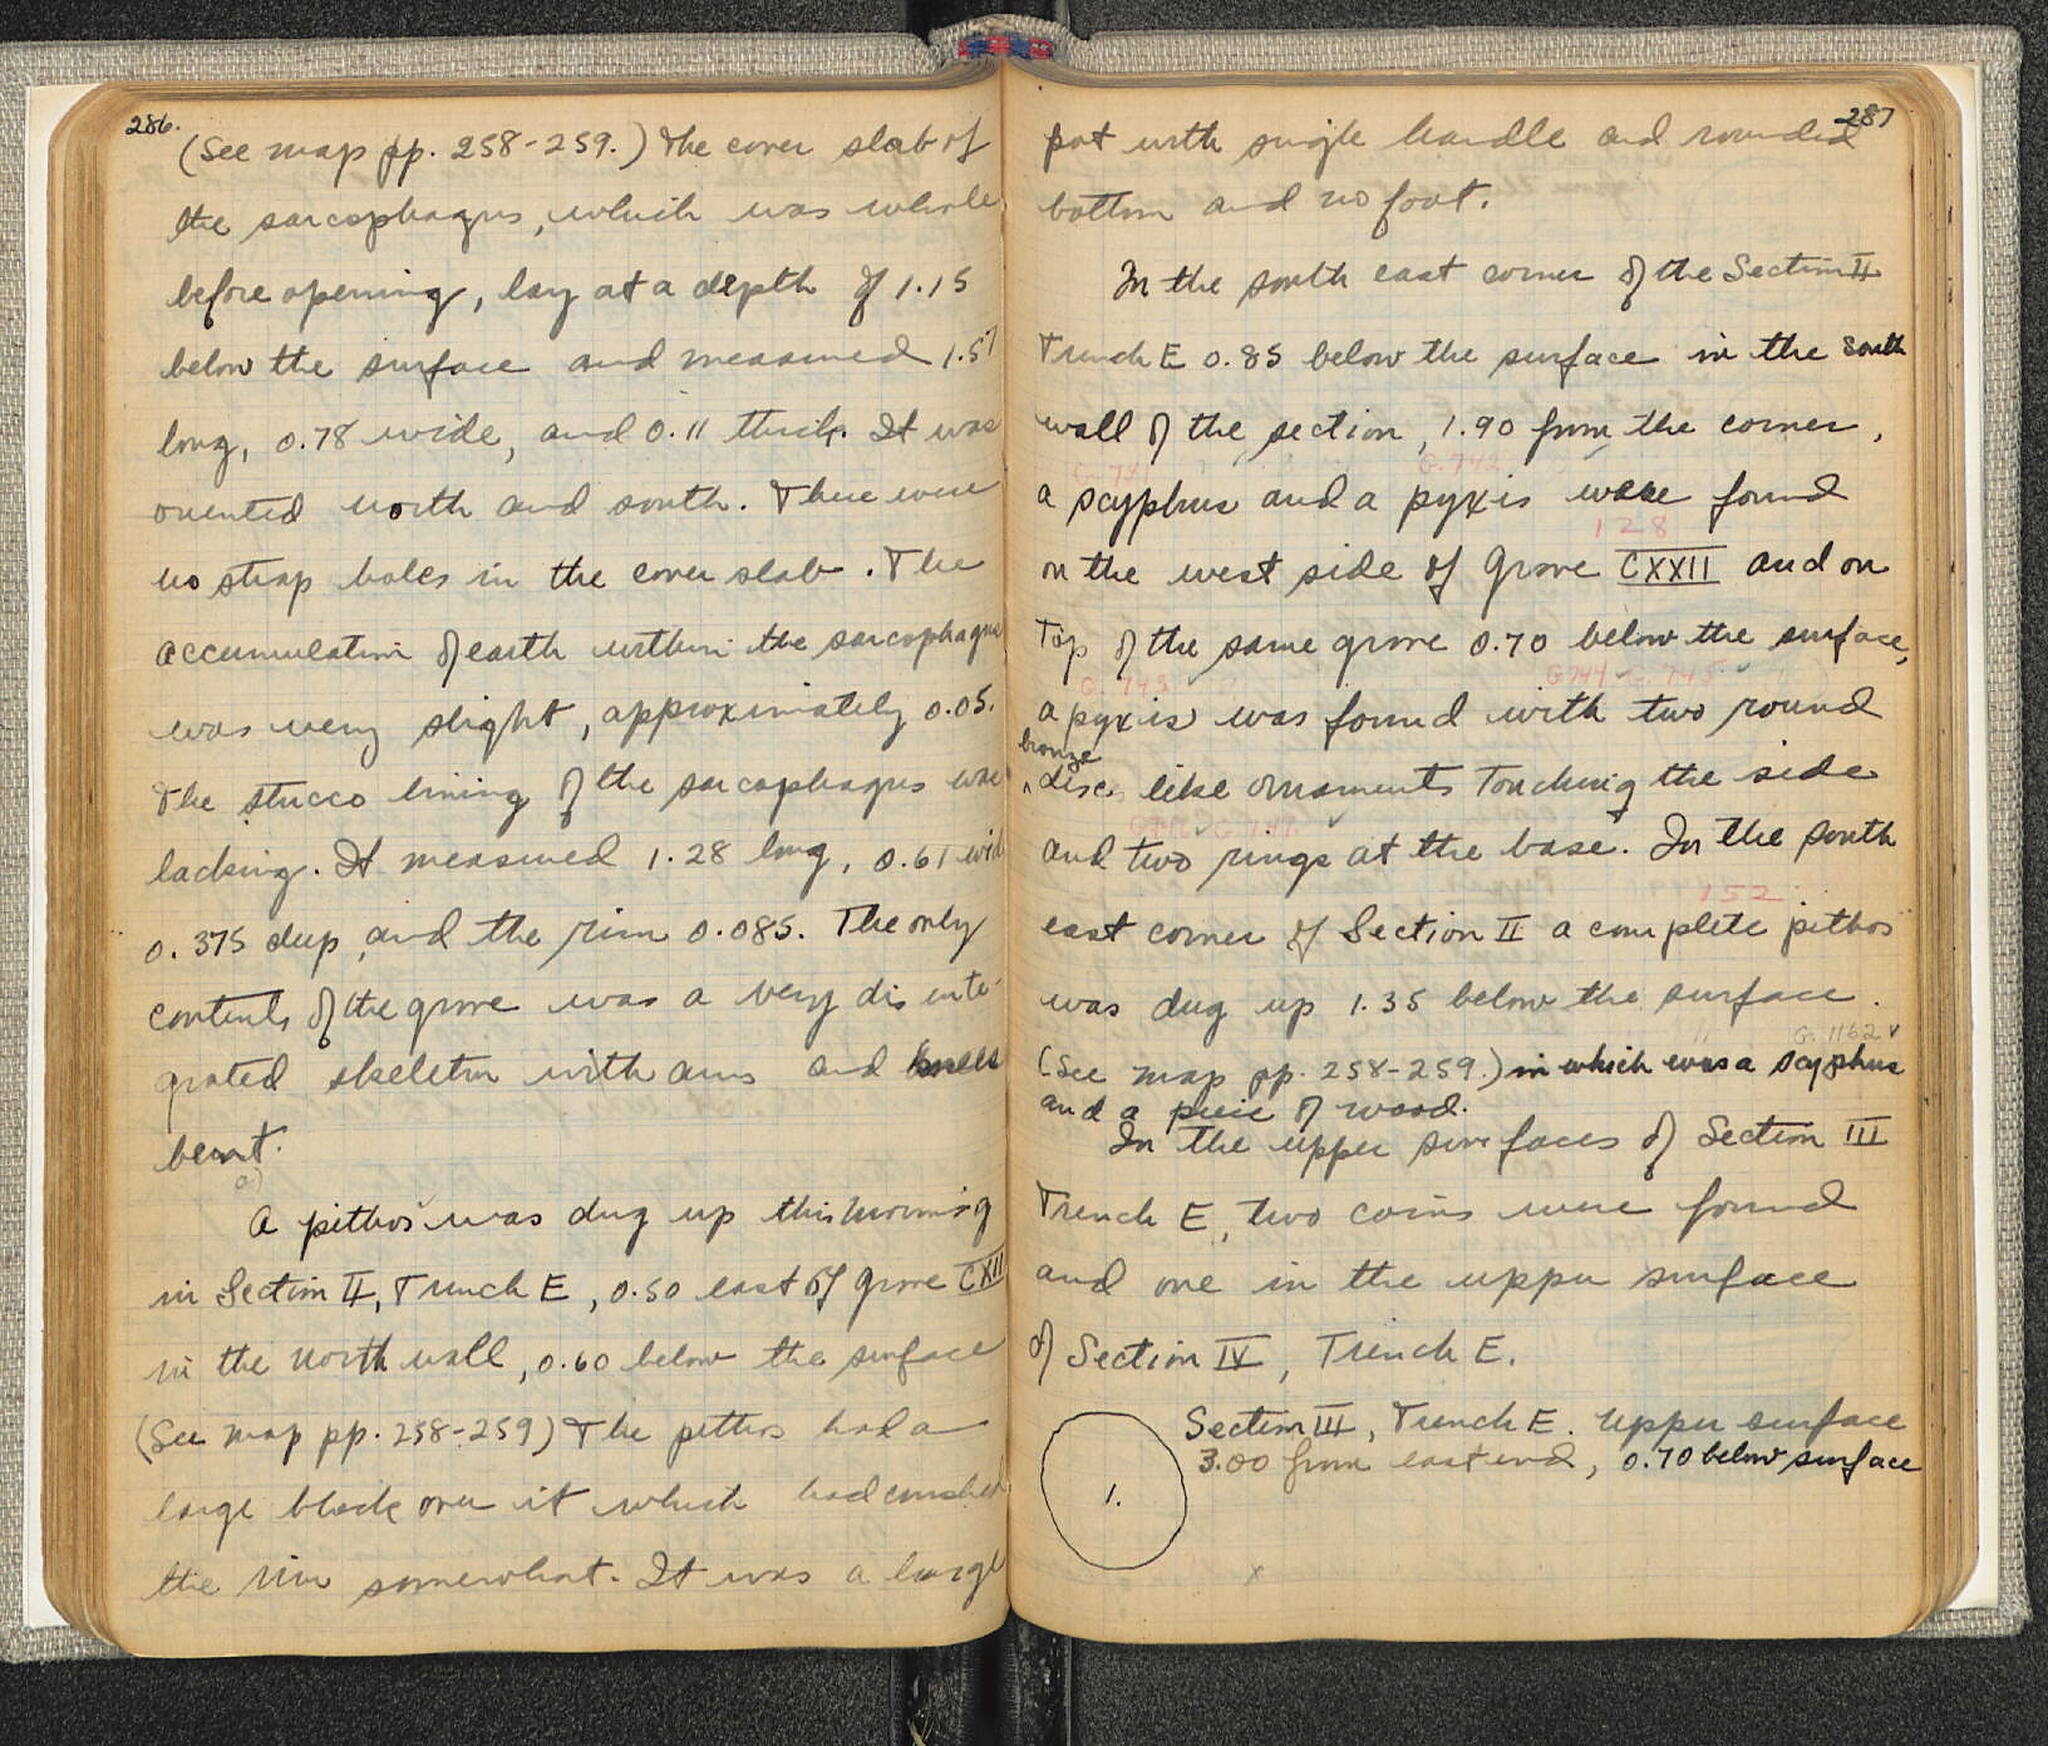 286.
(See map pp. 258-259.) The cover slab of
the sarcophagus, which was whole
before opening, lay at a depth of 1.15
below the surface and measured 1.57
long, 0.78 wide, and 0.11 thick. It was
oriented north and south. There were
no strap holes in the cover slab. The
accumulation of earth within the sarcophagus
was very slight, approximately 0.05.
The stucco lining of the sarcophagus was
lacking. It measured 1.28 long, 0.61 wide
0.375 deep, and the rim 0.085. The only
contents of the grave was a very disinte-
grated skeleton with arms and knees
bent.
a)
A pithos was dug up this morning
in Section II, Trench E, 0.50 east of grave CXII
in the north wall, 0.60 below the surface
(See map pp. 258-259) The pithos had a
large block over it which had crushed
the rim somewhat. It was a large
287
pot with single handle and rounded
bottom and no foot.
In the south east corner of the Section II
Trench E 0.85 below the surface in the south
wall of the section, 1.90 from the corner,
G. 741 G. 742
a scyphus and a pyxis were found
128
on the west side of Grave CXXII and on
Top of the same grave 0.70 below the surface,
G. 743 G 744 G. 745
a pyxis was found with two round
bronze
disc like ornaments Touching the side
G 746 G. 747
and two rings at the base. In the south
152
east corner of Section II a complete pithos
was dug up 1.35 below the surface.
G. 1162
(See map pp. 258-259.) in which was a scyphus
and a piece of wood.
In the upper surfaces of Section III
Trench E, two coins were found
and one in the upper surface
of Section IV, Trench E.
Section III, Trench E. Upper surface
3.00 from east end, 0.70 below surface
1.
x